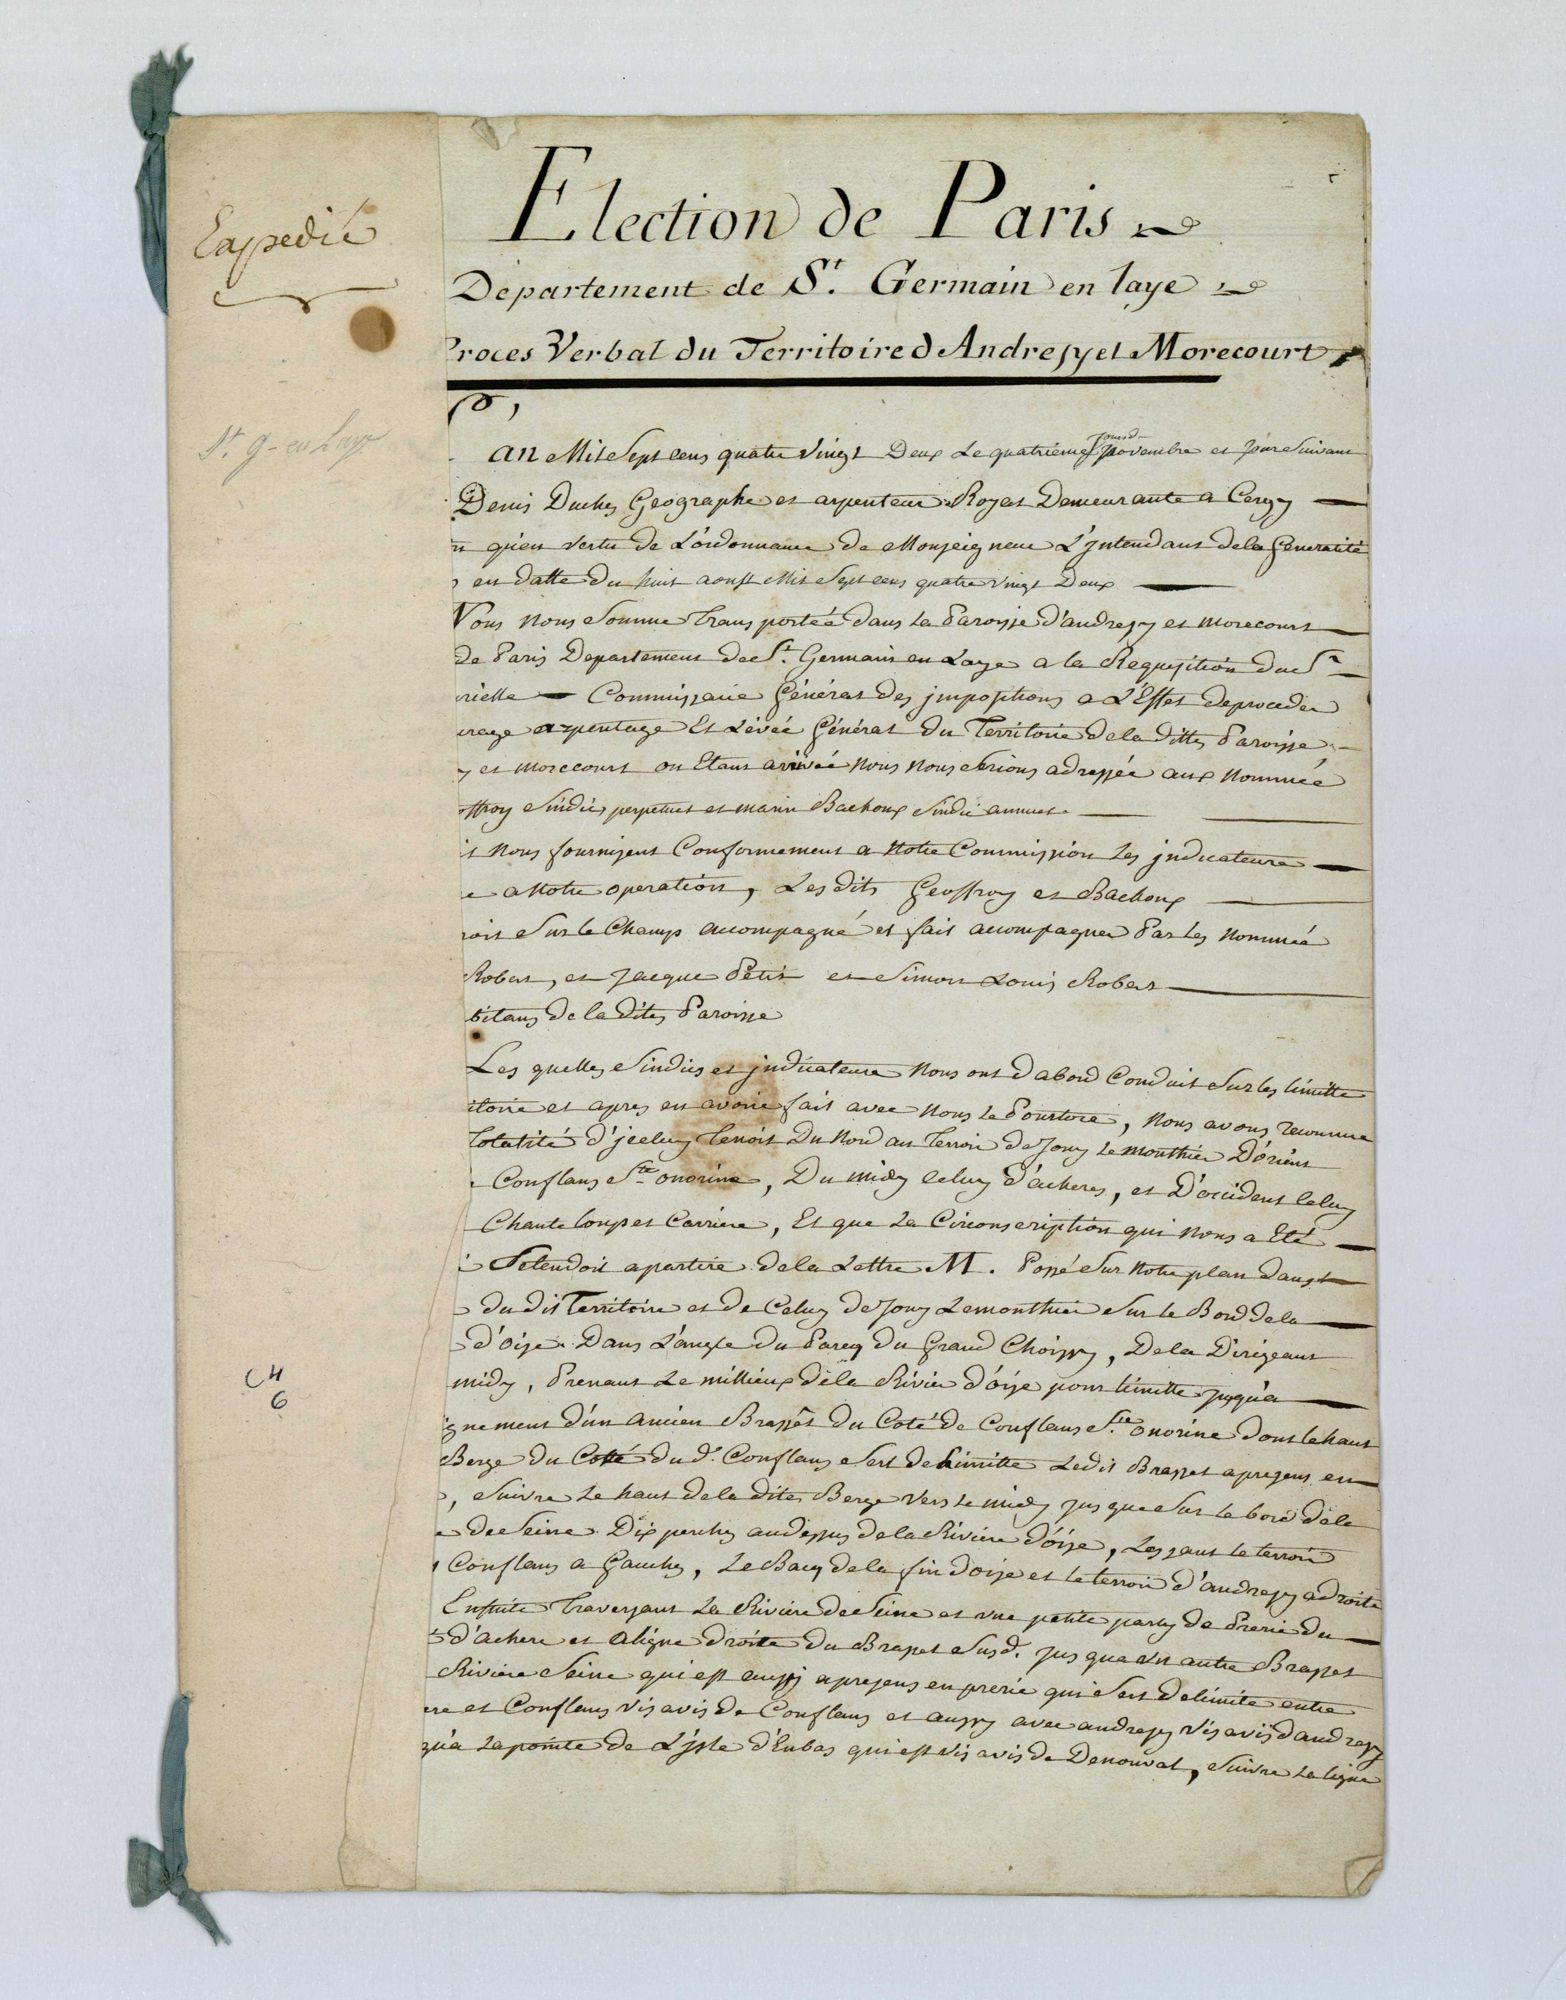 Expedié
St. g- en Laye
C 4
6
Election de Paris
Département de St. Germain en laye
Proces Verbal du Territoire d Andresy et Morecourt
an Mil Sept cens quatre vingt Deux Le quatrième jourd novembre et jour Suivant
Denis Duchez Geographe et arpenteur Royal Demeurante a Cergy
qu'en vertu de L'ordonnance de Monseigneur L'jntendant de la Generalité
en datte du huit aoust Mil Sept cens quatre vingt Deux
Nous nous Somme transportéé dans La Paroisse d'andresy et morecourt
de Paris Departement de St. Germain en Laye a la Requisition du Sr
rielle Commissaire Général des jmpositions a L'Effet de proceder
urage arpentage Et Levéé Général du Territoire de la ditte Paroisse
y et morecourt ou Etant arivéé nous nous Serions adresséé aux nommée
offroy Sindic perpetuel et marin Bachoux Sindic annuel
nous fournissent Conformement a notre Commission Les jndicateure
e a notre operation, Les dits Geoffroy et Bachoux
roit Sur le Champ accompagné et fait accompagner Par Les nommée
Robert, et Jacque Petit et Simon Louis Robert
bitans de la dite Paroisse
Les quelles Sindics et jndicateure nous ont d abord Conduit Sur les limitte
itoire et apres en avoire fait avec nous Le Pourtoure, nous avons reconnue
totalité d'jceluy tenoit Du nord au terroir de Jouy Le monthier D'orient
Conflans Ste onorine, Du midy celuy d'acheres, et D'occident celuy
Chanteloup et Carriere, Et que La Circonscription qui nous a Eté
S'etendoit a partire de la Lettre M. Possé Sur notre plan dans l
du dit Territoire et de Celuy de Jouy Le monthier Sur le Bord de la
d'oise Dans L'angle du Parcq du Grand Choissy, De la Dirigeant
midy, Prenant Le millieux de la Riviere d'oise pour limitte jusqu'a
ignement d'un ancien Brasset du Coté de Conflans Ste onorine dont le haut
Berge du Coté du d. Conflans Sert de Limitte Le dit Brasset apresent en
, Suivre Le haut de la dite Berge vers Le midy jus que Sur le bord de la
e de Seine Dix perches au dessus de la Riviere d'oise, Lessant le terroir
Conflans a Gauche, Le Bacq de la fin d'oise et le terroir d'andresy a droite
Ensuite traversant La Riviere de Seine et une petite party de Prerie du
d'achere et a ligne droite du Brasset Susd. jus qua un autre Brasset
Riviere Seine qui est aussy apresent en prerie qui Sert de limite entre
ere et Conflans vis avis de Conflans et aussy avec andresy vis avis d'andresy
qu'a La pointe de L'jsle d'Enbas qui est vis avis de Denouval, Suivre La ligne